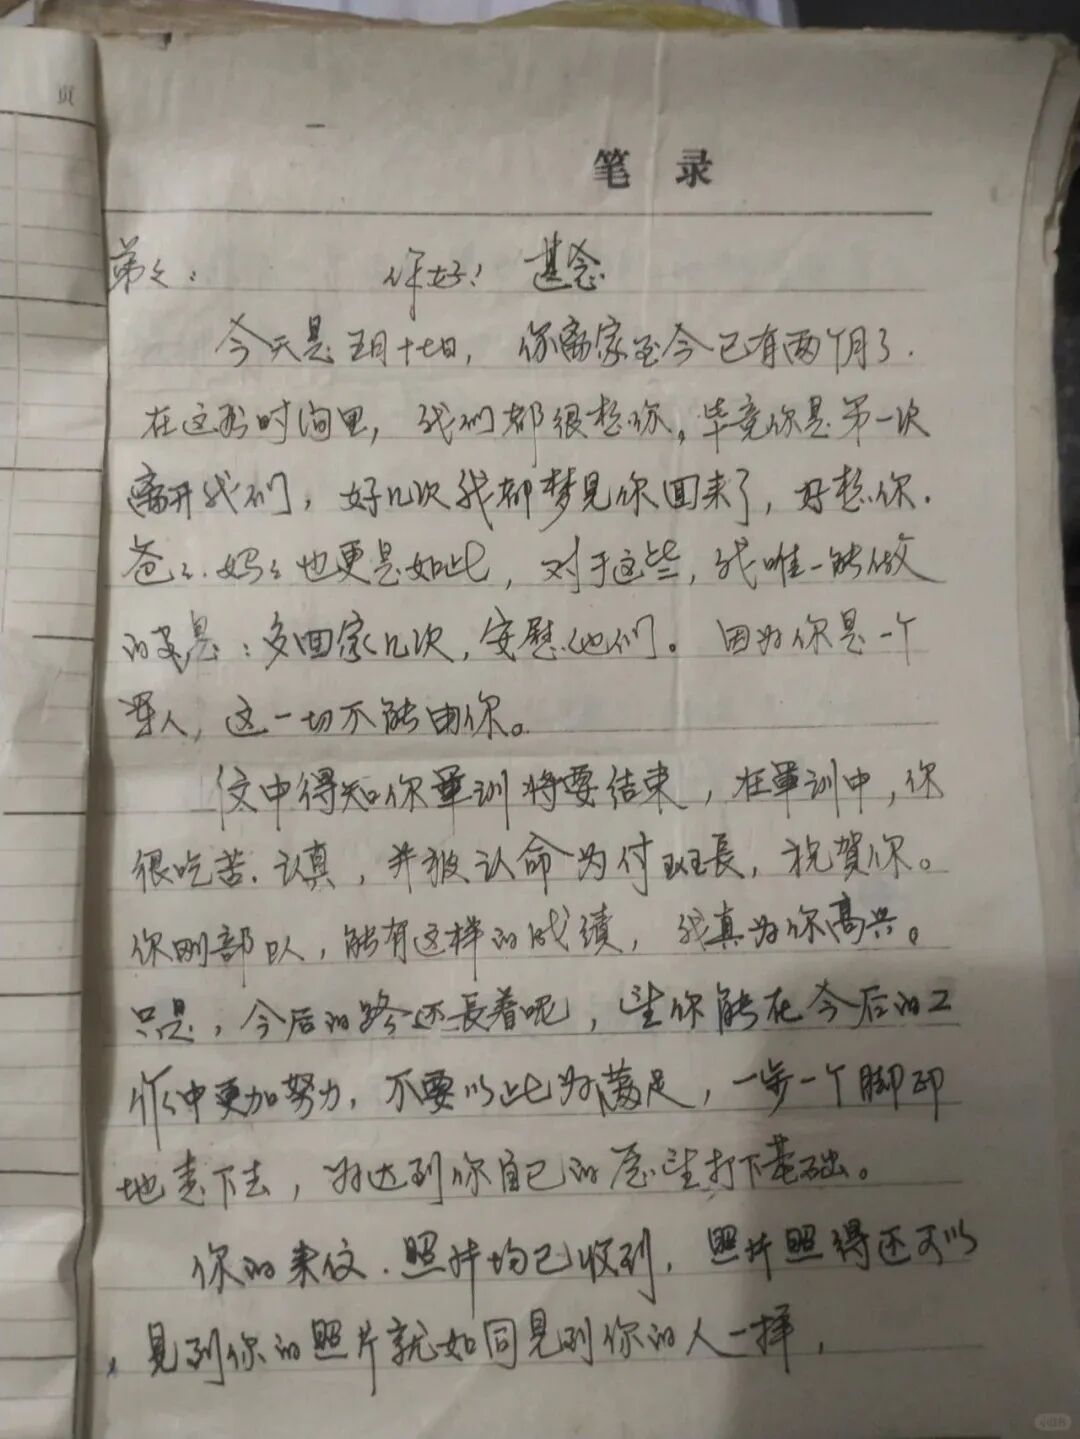 页
笔 录
弟々： 你好！ 甚念
今天是五月十七日，你离家至今已有两个月了.
在这段时间里，我们都很想你，毕竟你是第一次
离开我们，好几次我都梦见你回来了，好想你.
爸々.妈々也更是如此，对于这些，我唯一能做
的就是：多回家几次，安慰他们。因为你是一个
军人，这一切不能由你。
信中得知你軍训将要结束，在軍训中，你
很吃苦.认真，并被认命为付班長，祝賀你。
你刚部队，能有这样的成绩，我真为你高兴。
只是，今后的路还長着呢，望你能在今后的工
作中更加努力，不要以此为满足，一步一个脚印
地走下去，为达到你自己的愿望打下基础。
你的来信.照片均已收到，照片照得还可以
，見到你的照片就如同見到你的人一样，
小红书